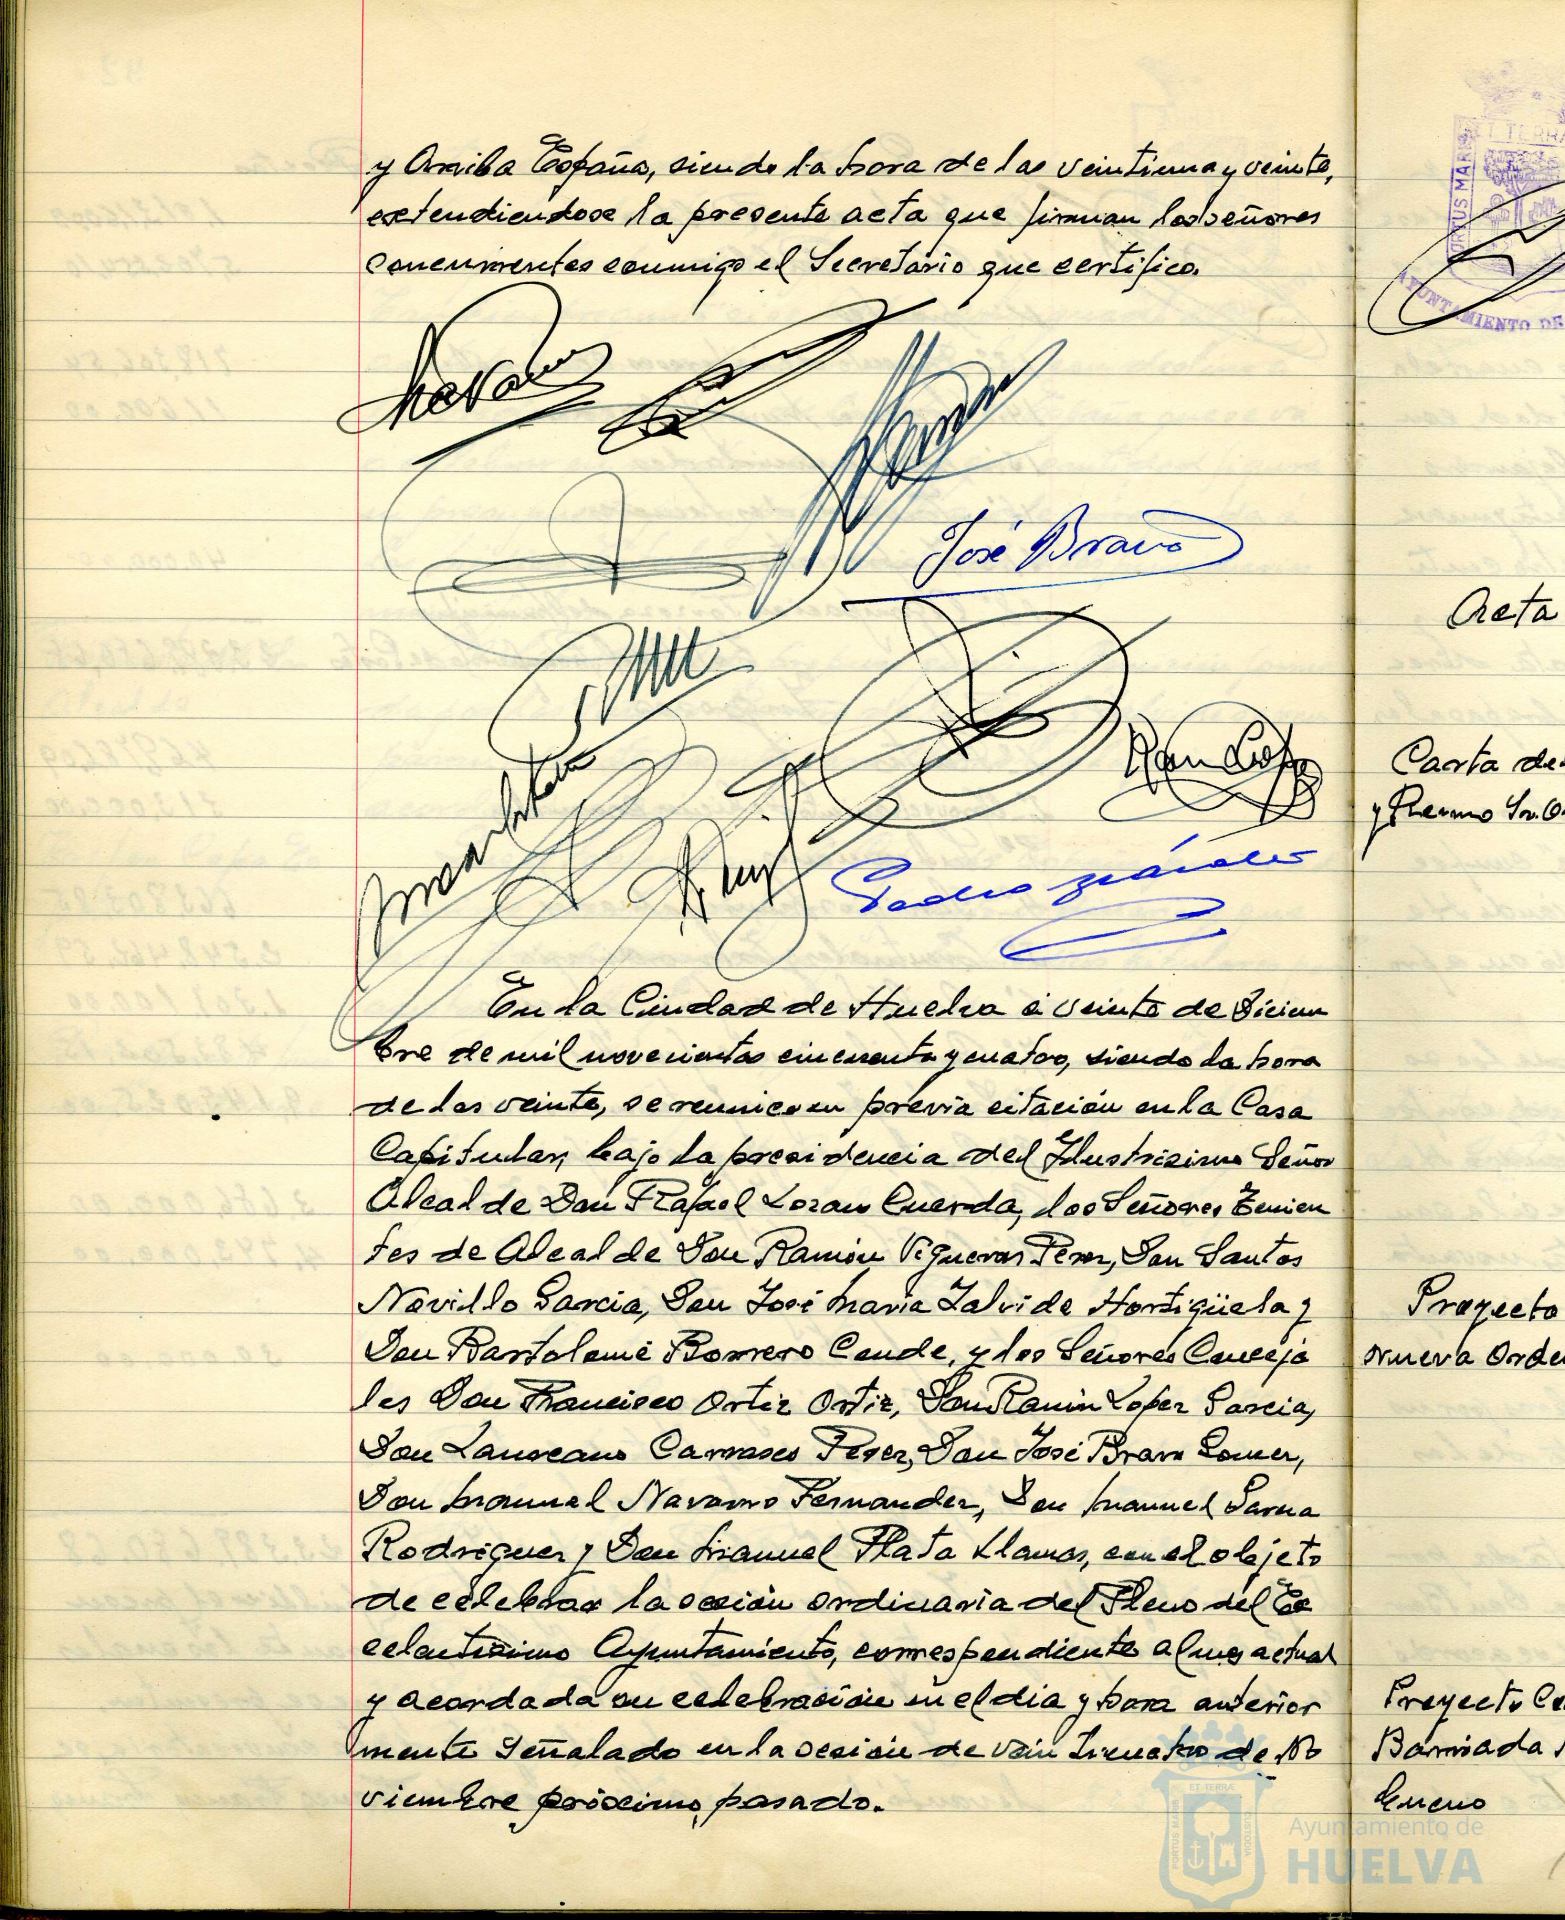 y Arriba España, siendo la hora de las veintiuna y veinte,
extendiendose la presente acta que firman los señores
concurrentes conmigo el Secretario que certifico.
José Bravo
Pedro
En la Ciudad de Huelva á veinte de Diciem
bre de mil novecientos cincuenta y cuatro, siendo la hora
de las veinte, se reunieron previa citación en la Casa
Capitular, bajo la presidencia del Ilustrisimo Señor
Alcalde Don Rafael Lozano Cuerda, los Señores Tenien
tes de Alcalde Don Ramón Vigueras Perez, Don Santos
Novillo Garcia, Don José Maria Zalvide Hortigüela y
Don Bartolomé Borrero Conde, y los Señores Conceja
les Don Francisco Ortiz Ortiz, Don Ramón Lopez Garcia,
Don Laureano Carrasco Perez, Don José Bravo Gomez,
Don Manuel Navarro Fernandez, Don Manuel Garcia
Rodriguez y Don Manuel Plata Llamas, con el objeto
de celebrar la sesión ordinaria del Pleno del Ex
celentisimo Ayuntamiento, correspondiente al mes actual
y acordada su celebración en el dia y hora anterior
mente señalado en la sesión de veinticuatro de No
viembre próximo pasado.
ET TERRA
PORTUS MARIS
AYUNTAMIENTO DE
Acta
Carta de
Proyecto
nueva Orde
Proyecto Co
Barriada
Ayuntamiento de
HUELVA